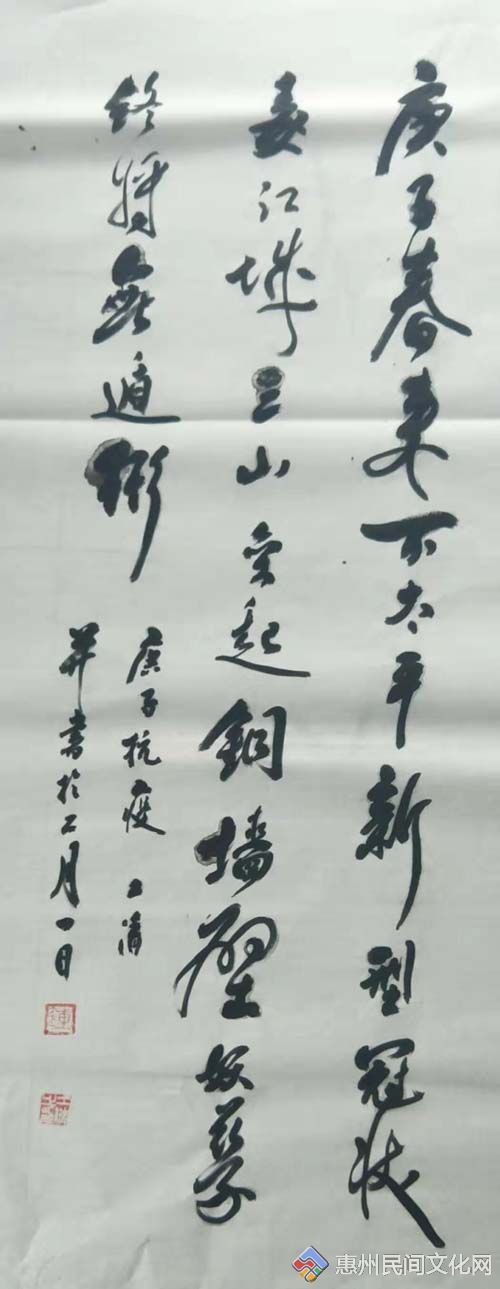 庚子春来不太平新型冠状
袭江城三山垒起铜墙壁妖孽
终将无遁形
庚子抗疫
并书于二月一日
惠州民间文化网